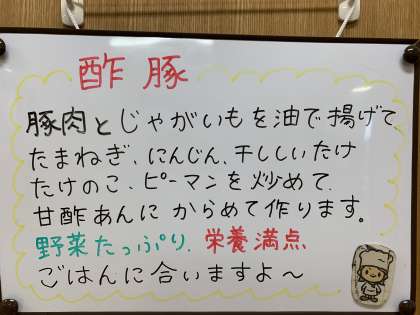 酢豚
豚肉とじゃがいもを油で揚げて
たまねぎ、にんじん、干ししいたけ
たけのこ、ピーマンを炒めて
甘酢あんにからめて作ります。
野菜たっぷり、栄養満点
ごはんに合いますよ〜